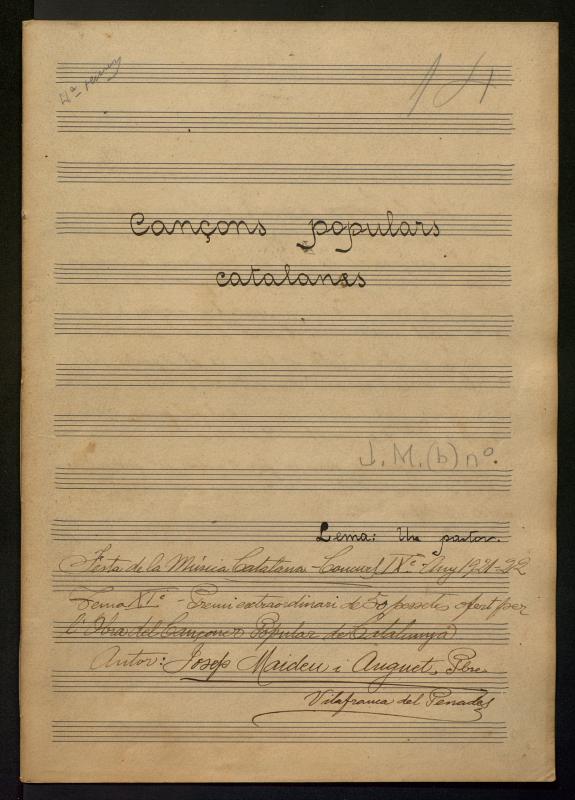 14
Cançons populars
catalanes
J. M. (b) nº.
Lema: Un pastor.
Festa de la Música Catalana - Concurs IXº - Any 1921-22
Tema XIº - Premi extraordinari de 50 pessetes ofert per
l'Obra del Cançoner Popular de Catalunya
Autor: Josep Maideu i Auguet, Pbre.
Vilafranca del Penadés